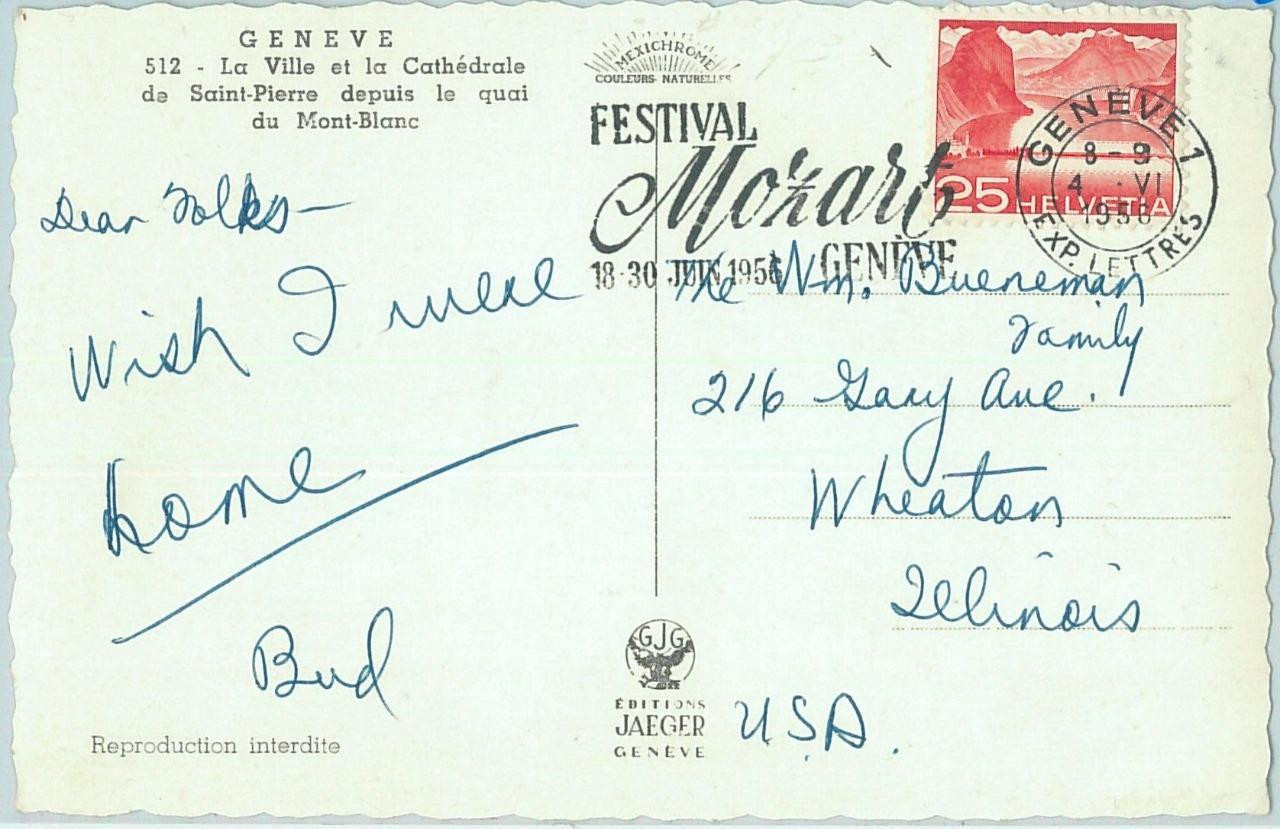 GENEVE
512 - La Ville et la Cathédrale
de Saint-Pierre depuis le quai
du Mont-Blanc
MEXICHROME
COULEURS NATURELLES
FESTIVAL
Mozart
18-30 JUIN 1956 GENÈVE
25 HELVETIA
GENÈVE 1
8-9
4 · VI
1956
EXP. LETTRES
Dear Folks—
Wish I were
Home
Bud
The Wm. Bueneman
Family
216 Gary Ave.
Wheaton
Illinois
USA.
GJG
ÉDITIONS
JAEGER
GENÈVE
Reproduction interdite